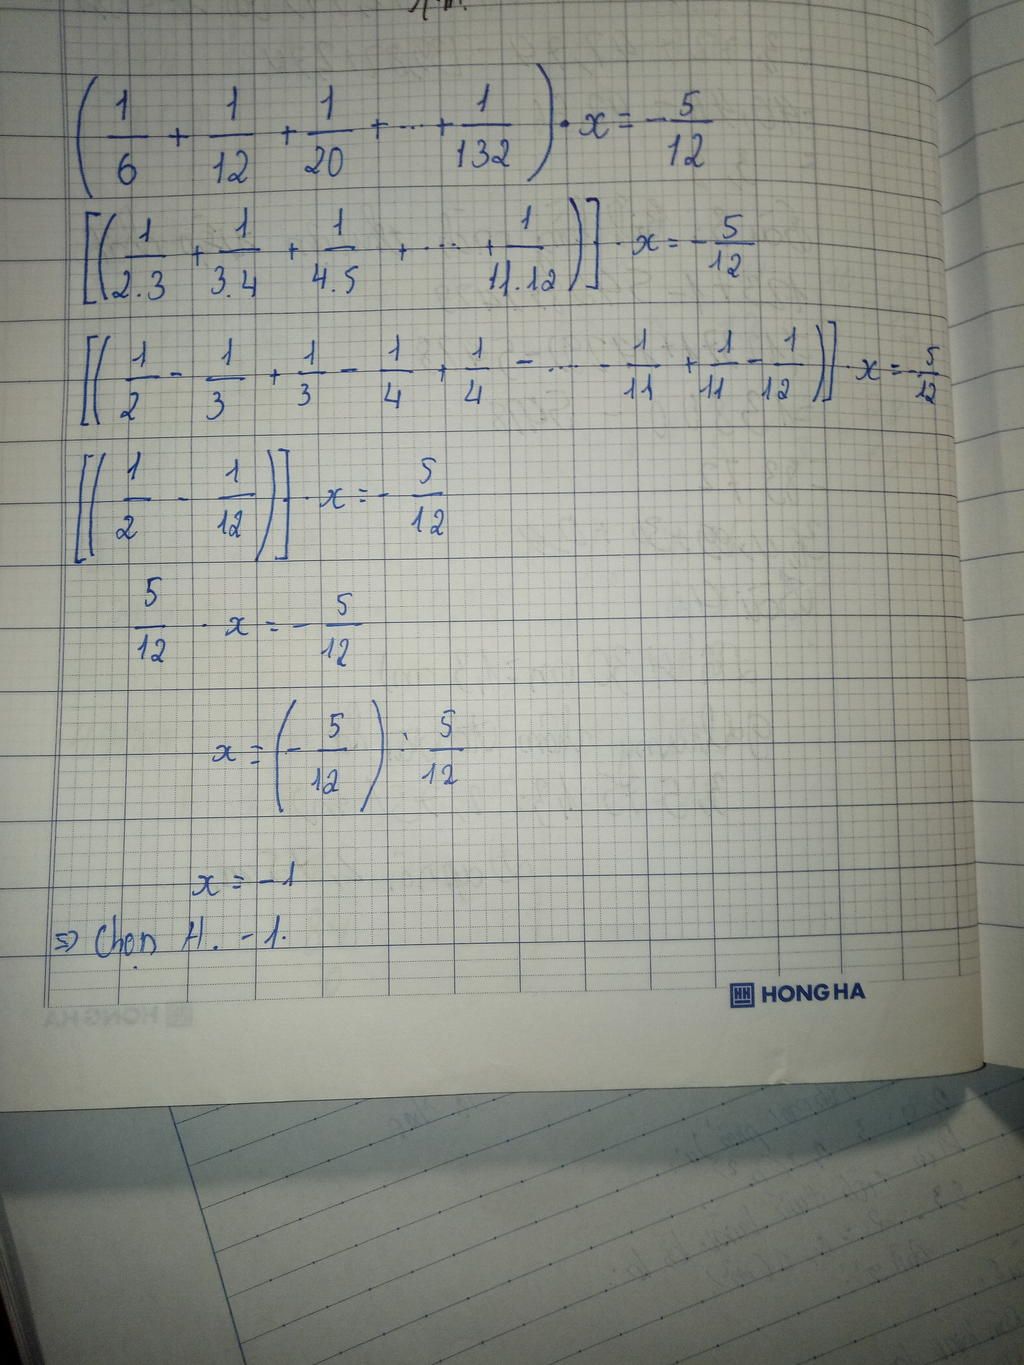 (1/6 + 1/12 + 1/20 + ... + 1/132) . x = - 5/12
[(1/2.3 + 1/3.4 + 1/4.5 + ... + 1/11.12)] . x = - 5/12
[(1/2 - 1/3 + 1/3 - 1/4 + 1/4 - ... - 1/11 + 1/11 - 1/12)] . x = - 5/12
[(1/2 - 1/12)] . x = - 5/12
5/12 . x = - 5/12
x = (- 5/12) : 5/12
x = - 1
=> Chọn A. - 1.
HONG HA